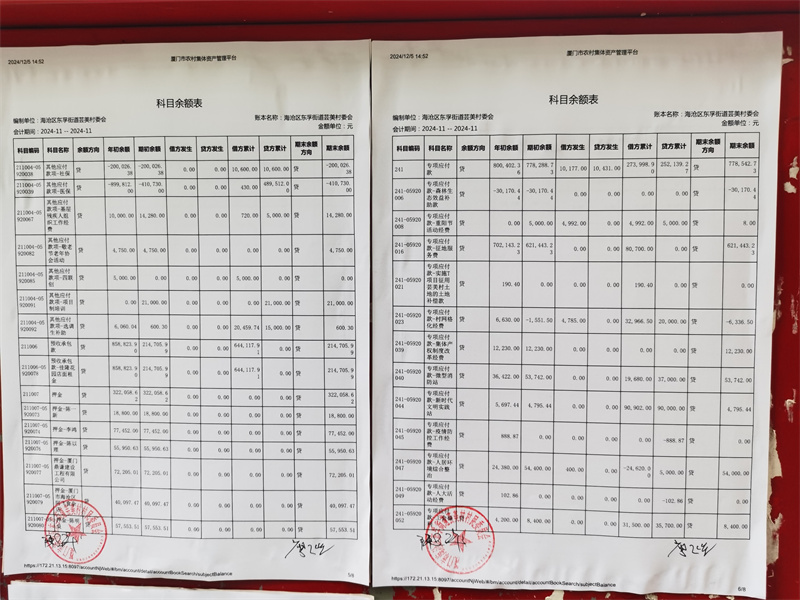 2024/12/5 14:52
厦门市农村集体资产管理平台
科目余额表
编制单位：海沧区东孚街道芸美村委会
账本名称：海沧区东孚街道芸美村委会
会计期间：2024-11 -- 2024-11
金额单位：元
科目编码 科目名称 余额方向 年初余额 期初余额 借方发生 贷方发生 借方累计 贷方累计 期末余额方向 期末余额
211004-05920038 其他应付款项-社保 贷 -200,026.38 -200,026.38 0.00 0.00 10,600.00 10,600.00 贷 -200,026.38
211004-05920039 其他应付款项-医保 贷 -899,812.00 -410,730.00 0.00 0.00 430.00 489,512.00 贷 -410,730.00
211004-05920067 其他应付款项-基层残疾人组织工作经费 贷 10,000.00 14,280.00 0.00 0.00 720.00 5,000.00 贷 14,280.00
211004-05920082 其他应付款项-敬老节老年协会活动 贷 4,750.00 4,750.00 0.00 0.00 0.00 0.00 贷 4,750.00
211004-05920085 其他应付款项-四联创 贷 5,000.00 0.00 0.00 0.00 5,000.00 0.00 贷 0.00
211004-05920091 其他应付款项-项目制培训 贷 0.00 21,000.00 0.00 0.00 0.00 21,000.00 贷 21,000.00
211004-05920092 其他应付款项-选调生补助 贷 6,060.04 600.30 0.00 0.00 20,459.74 15,000.00 贷 600.30
211006 预收承包款 贷 858,823.90 214,705.99 0.00 0.00 644,117.91 0.00 贷 214,705.99
贷 858,823.90 214,705.99 0.00 0.00 644,117.91 0.00 贷 214,705.99
211007 押金 贷 322,058.62 322,058.62 0.00 0.00 0.00 0.00 贷 322,058.62
211007-05920073 押金-陈一新 贷 18,800.00 18,800.00 0.00 0.00 0.00 0.00 贷 18,800.00
211007-05920074 押金-李鸿 贷 77,452.00 77,452.00 0.00 0.00 0.00 0.00 贷 77,452.00
211007-05920076 贷 55,950.63 55,950.63 0.00 0.00 0.00 0.00 贷 55,950.63
211007-05920077 押金-厦门鼎谦建设工程有限公司 贷 72,205.01 72,205.01 0.00 0.00 0.00 0.00 贷 72,205.01
211007-05920079 押金-厦门市海沧区 贷 40,097.47 40,097.47 0.00 0.00 0.00 0.00 贷 40,097.47
贷 57,553.51 57,553.51 0.00 0.00 0.00 0.00 贷 57,553.51
https://172.21.13.15:8097/accountNjWeb/#/bm/account/detail/accountBookSearch/subjectBalance
5/8
2024/12/5 14:52
厦门市农村集体资产管理平台
科目余额表
编制单位：海沧区东孚街道芸美村委会
账本名称：海沧区东孚街道芸美村委会
会计期间：2024-11 -- 2024-11
金额单位：元
科目编码 科目名称 余额方向 年初余额 期初余额 借方发生 贷方发生 借方累计 贷方累计 期末余额方向 期末余额
241 专项应付款 贷 800,402.36 778,288.73 10,177.00 10,431.00 273,998.90 252,139.27 贷 778,542.73
241-05920006 专项应付款-森林生态效益补助款 贷 -30,170.44 -30,170.44 0.00 0.00 0.00 0.00 贷 -30,170.44
241-05920008 专项应付款-重阳节活动经费 贷 0.00 5,000.00 4,992.00 0.00 4,992.00 5,000.00 贷 8.00
241-05920016 专项应付款-征地服务费 贷 702,143.23 621,443.23 0.00 0.00 80,700.00 0.00 贷 621,443.23
241-05920021 专项应付款-实施T项目征用芸美村土地的土地补偿款 贷 190.40 0.00 0.00 0.00 190.40 0.00 贷 0.00
241-05920023 专项应付款-村网格化经费 贷 6,630.00 -1,551.50 4,785.00 0.00 32,966.50 20,000.00 贷 -6,336.50
241-05920039 专项应付款-集体产权制度改革经费 贷 12,230.00 12,230.00 0.00 0.00 0.00 0.00 贷 12,230.00
241-05920040 专项应付款-微型消防站 贷 36,422.00 53,742.00 0.00 0.00 19,680.00 37,000.00 贷 53,742.00
241-05920044 专项应付款-新时代文明实践站 贷 5,697.44 4,795.44 0.00 0.00 90,902.00 90,000.00 贷 4,795.44
241-05920045 专项应付款-疫情防控工作经费 贷 888.87 0.00 0.00 0.00 0.00 -888.87 贷 0.00
241-05920047 专项应付款-人居环境综合整治 贷 24,380.00 54,400.00 400.00 0.00 -24,620.00 5,000.00 贷 54,000.00
241-05920049 专项应付款-人大活动经费 贷 102.86 0.00 0.00 0.00 0.00 -102.86 贷 0.00
241-05920052 专项应付 贷 4,200.00 8,400.00 0.00 0.00 31,500.00 35,700.00 贷 8,400.00
https://172.21.13.15:8097/accountNjWeb/#/bm/account/detail/accountBookSearch/subjectBalance
6/8